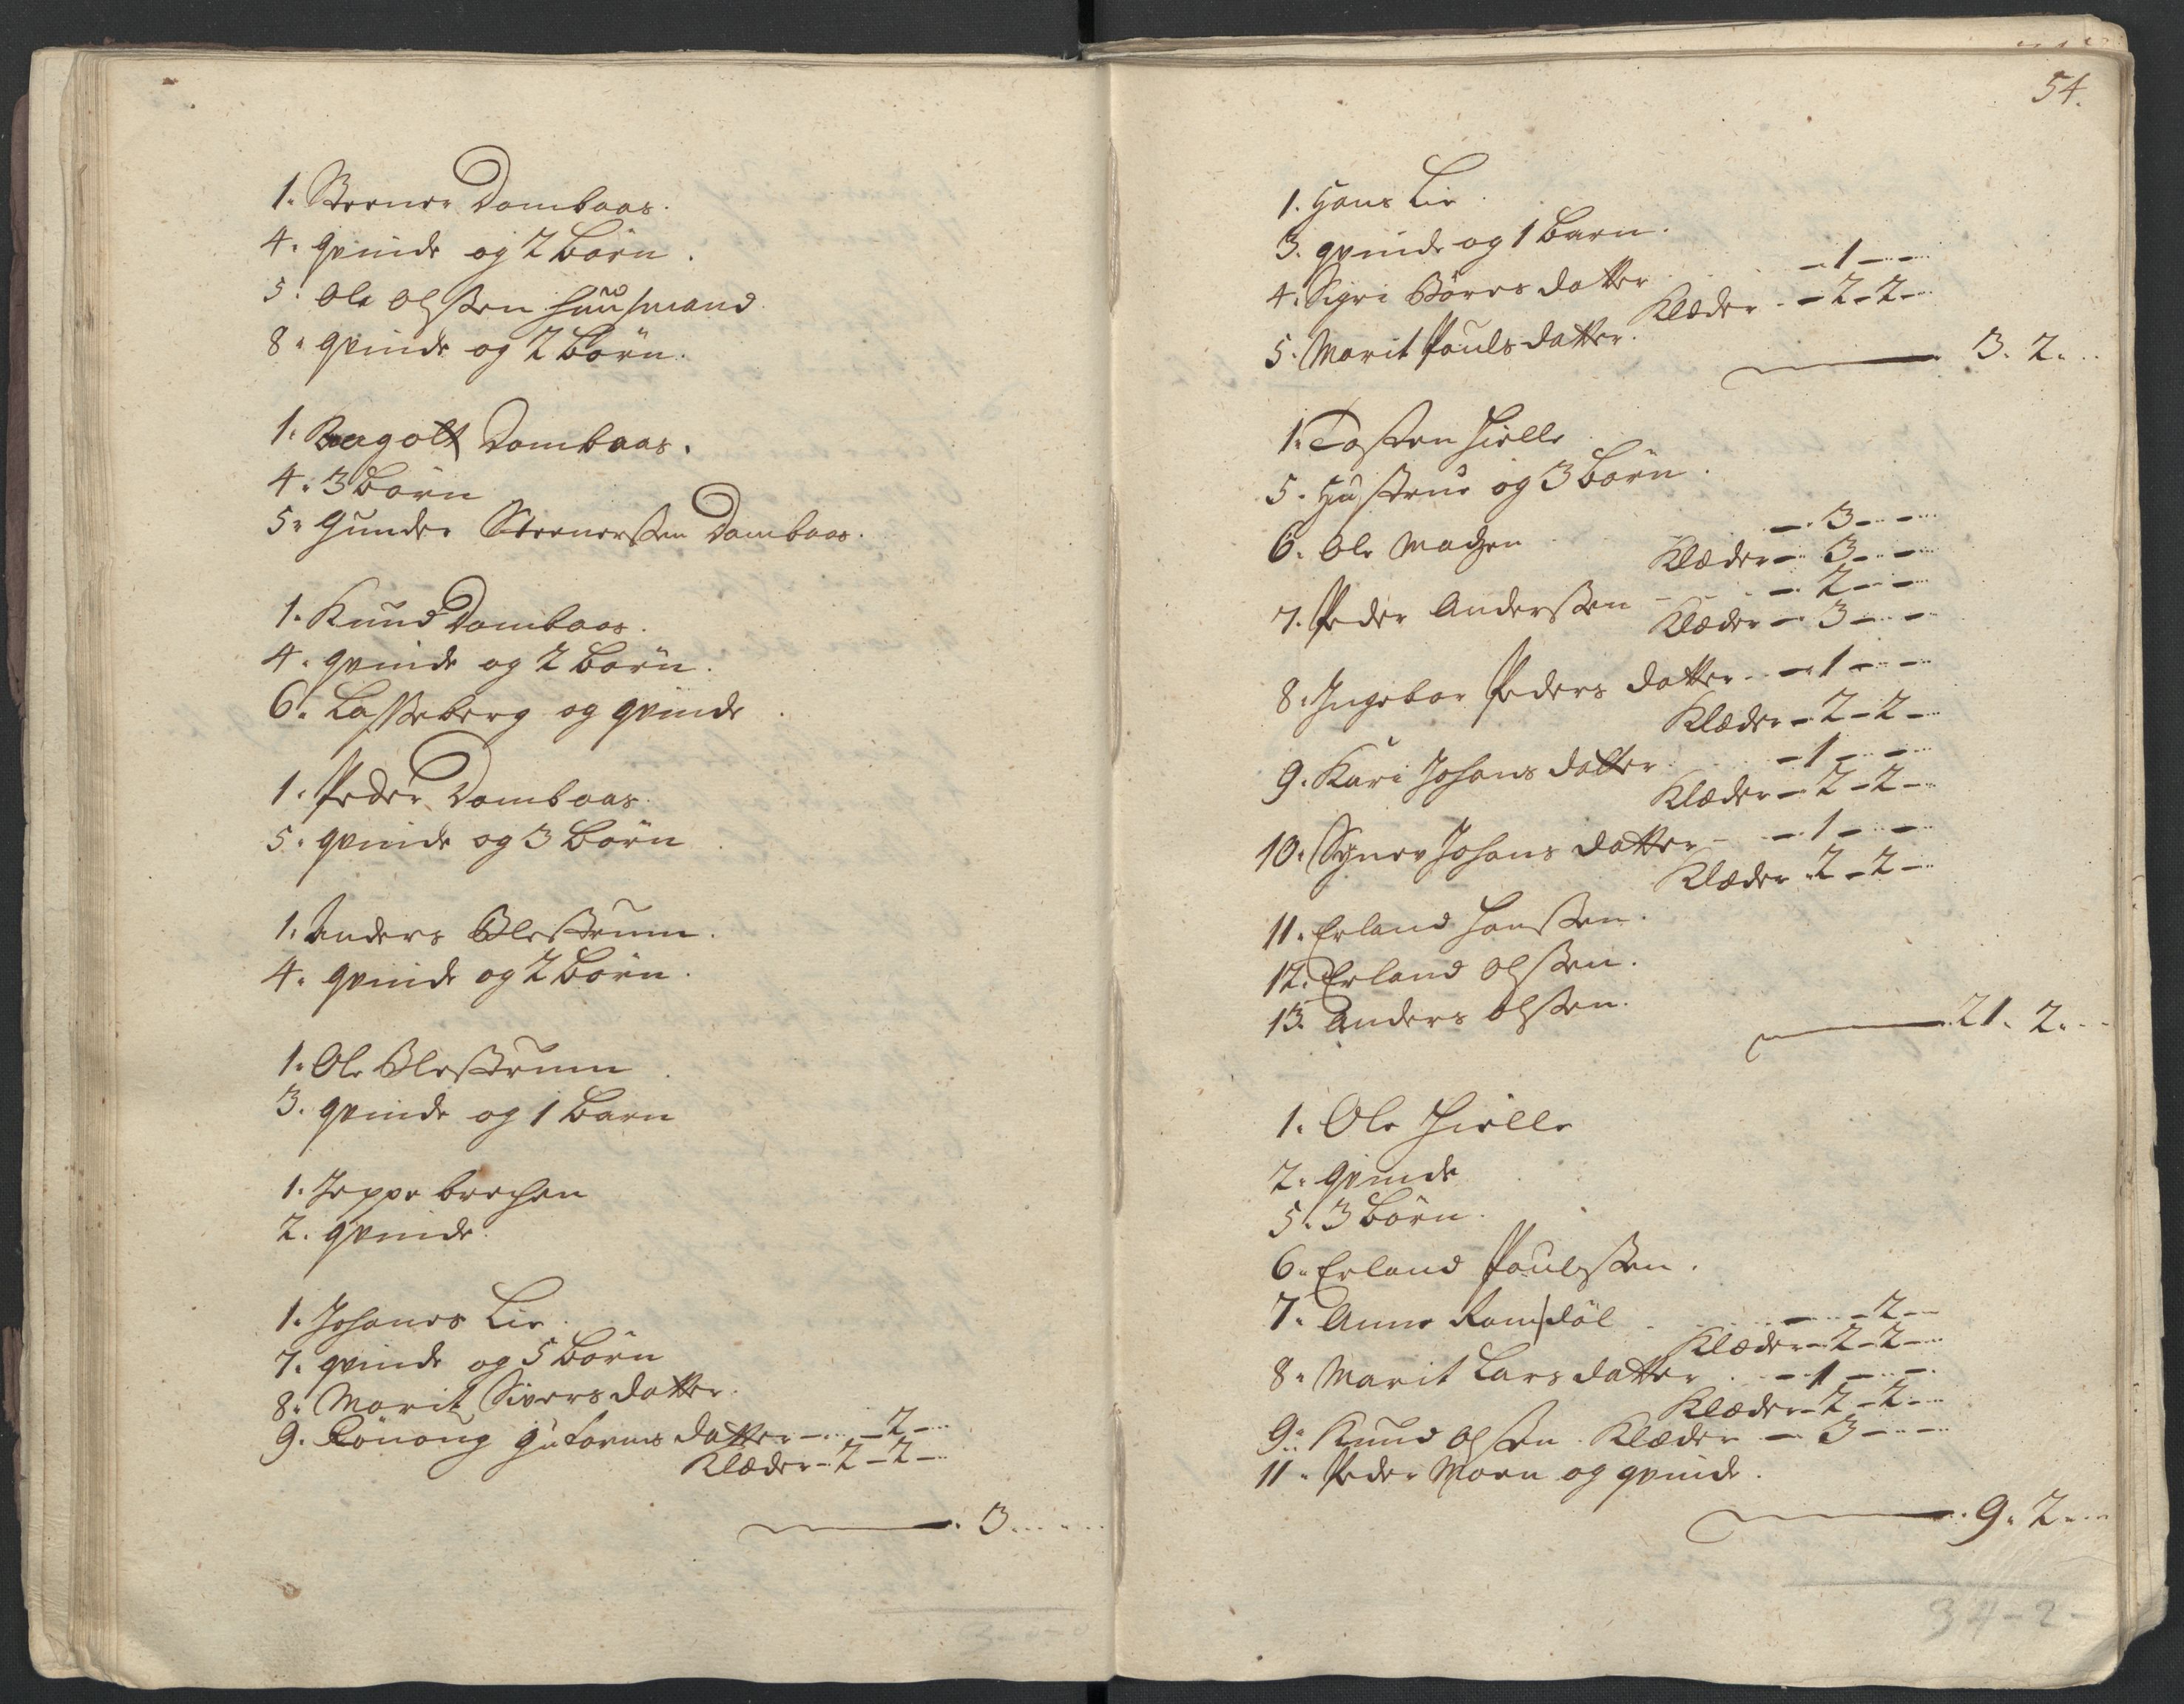 1. Steener Dombaas.
4. qvinde og 2 börn.
5. Ole Olssen huusmand
8. qvinde og 2 börn.
1. Bergolt Dombaas.
4. 3 börn
5. Gunder Steenerssen Dombaas.
1. Knud Dombaas.
4. qvinde og 2 börn.
6. Lasseberg og qvinde
1. Peder Dombaas.
5. qvinde og 3 börn
1. Anders Blestrum.
4. qvinde og 2 börn.
1. Ole Blestrum
3. qvinde og 1 barn
1. Jeppe brechen
2. qvinde.
1. Johanes Lie.
7. qvinde og 5 börn
8. Marit Sivers datter.
9. Rönoug Gutorms datter - 2 -
Klæder - 2 - 2 -
3.
54.
1. Hans Lie.
3. qvinde og 1 barn.
4. Sigri Börres datter - 1 - -
Klæder - 2 - 2 -
5. Marit Pouls datter.
3. 2.
1. Tosten Hielle
5. Hustrue og 3 börn.
6. Ole Madzen - 3 - -
Klæder - 3 - -
7. Peder Anderssen - 2 - -
Klæder - 3 - -
8. Ingebor Peders datter - 1 - -
Klæder - 2 - 2 -
9. Kari Johans datter - 1 - -
Klæder - 2 - 2 -
10. Synev Johans datter - 1 - -
Klæder 2 - 2 -
11. Erland Hanssen.
12. Erland Olssen.
13. Anders Olssen.
21. 2.
1. Ole Hielle
2. qvinde
5. 3 börn.
6. Erland Poulssen.
7. Anne Romsdöl - 2 -
Klæder - 2 - 2 -
8. Marit Lars datter - 1 - -
Klæder - 2 - 2 -
9. Knud Olssen Klæder - 3 - -
11. Peder Moen og qvinde.
9. 2.
3 - - 0
34 - 2 -